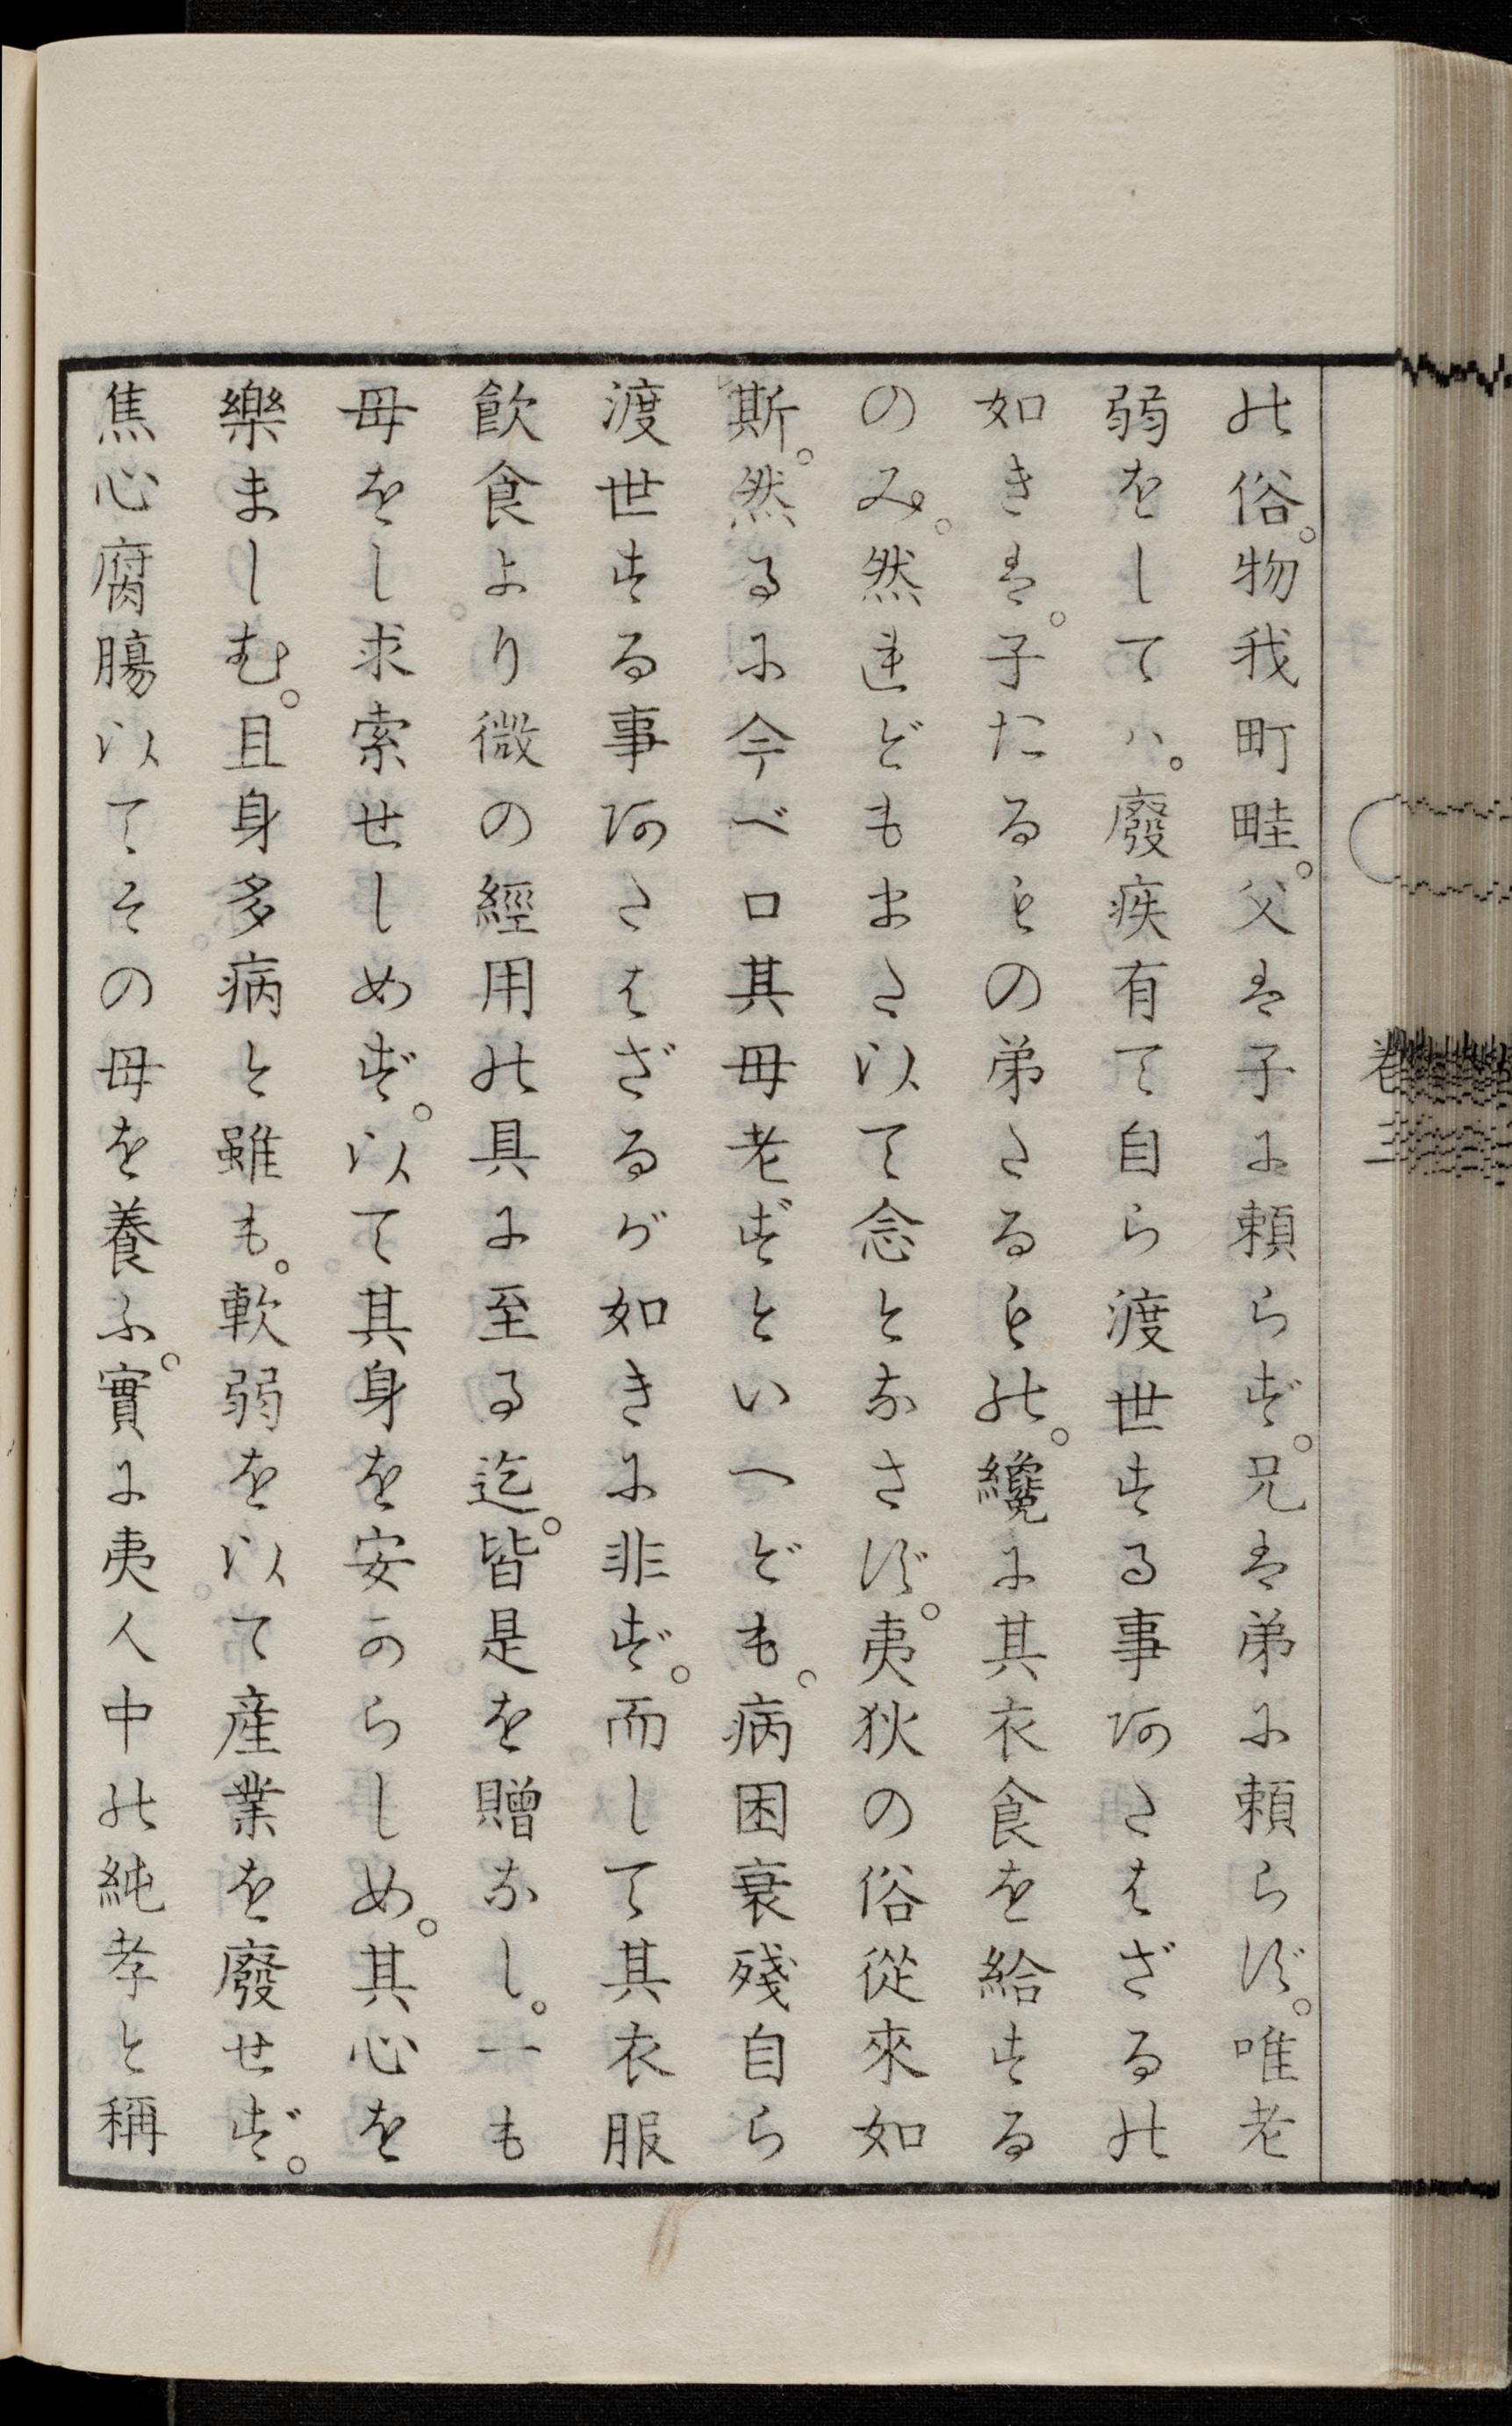 の俗。物我町畦。父は子に頼らず。兄は弟に頼らず。唯老
弱をしてハ。廢疾有て自ら渡世する事あたはざるの
如きは。子たるもの弟たるもの。纔に其衣食を給する
のみ。然れどもまた以て念となさず。夷狄の俗從來如
斯。然るに今ベロ其母老ずといへども。病困衰殘自ら
渡世する事あたはざるが如きに非ず。而して其衣服
飮食より微の經用の具に至る迄。皆是を贈なし。一も
母をし求索せしめず。以て其身を安からしめ。其心を
樂ましむ。且身多病と雖も。軟弱を以て産業を廢せず。
焦心腐膓以てその母を養ふ。實に夷人中の純孝と稱
卷三